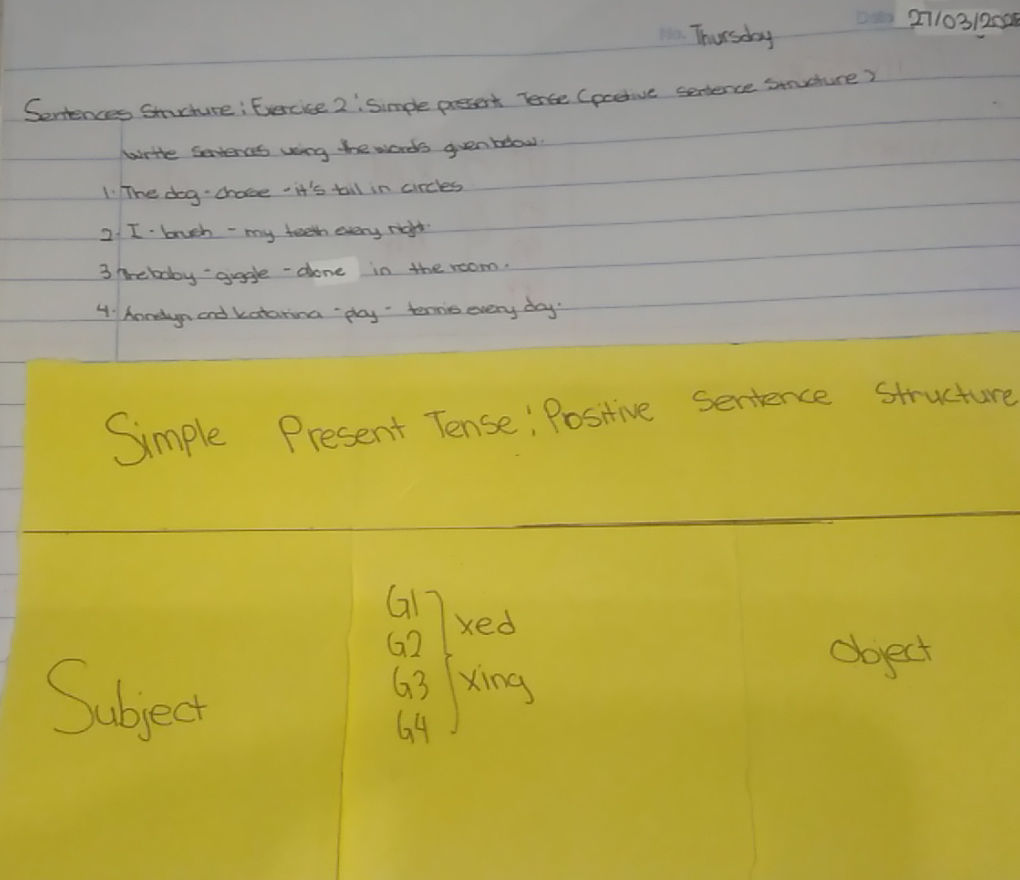 No. Thursday Date 27/03/2025
Sentences Structure: Exercise 2: Simple present Tense (positive sentence structure)
Write sentences using the words given below.
1. The dog - chase - it's tail in circles
2. I - brush - my teeth every night.
3 The baby - giggle - alone in the room.
4. Annelyn and Katarina - play - tennis every day.
Simple Present Tense: Positive Sentence Structure
Subject
G1
G2
G3
G4
xed
xing
Object